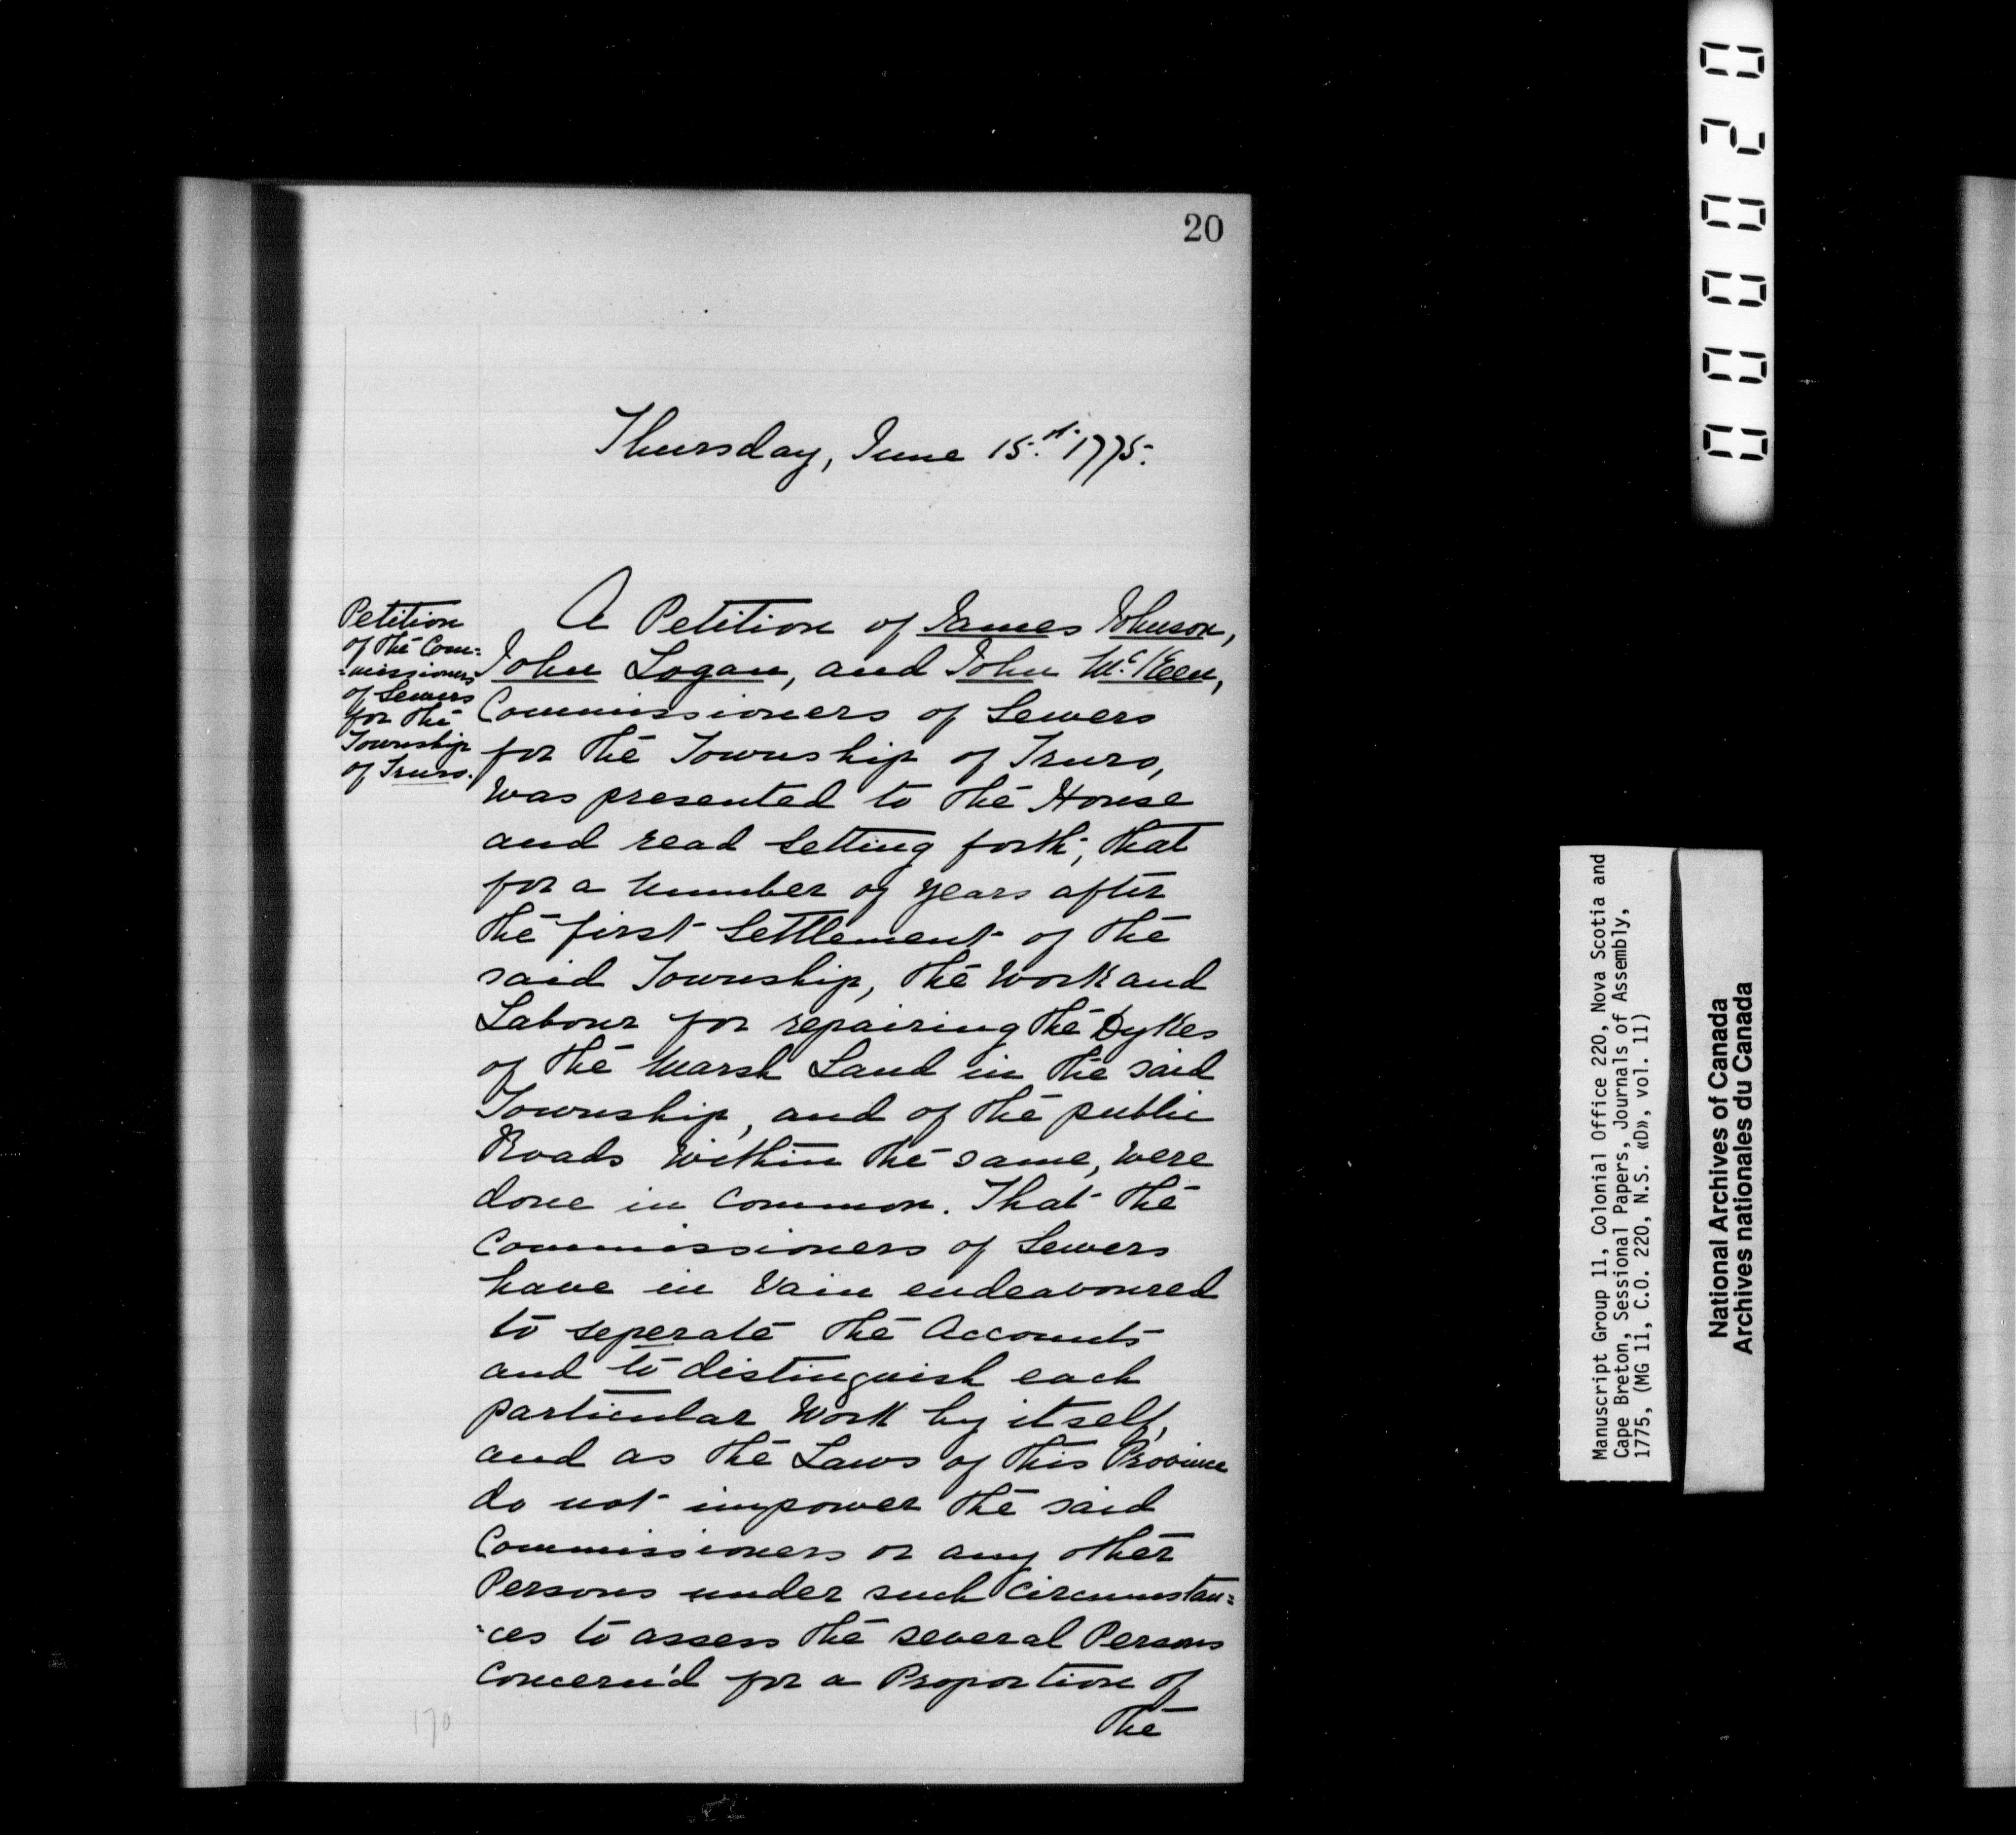 20
Thursday, June 15.st 1775.
Petition
of the Com=
=missioners
of Sewers
for the
Township
of Truro.
A Petition of James Johnson,
John Logan, and John Mc.Keen,
Commissioners of Sewers
for the Township of Truro,
was presented to the House
and read setting forth; that
for a number of years after
the first Settlement of the
said Township, the Work and
Labour for repairing the Dykes
of the Marsh Land in the said
Township, and of the public
Roads within the same, were
done in Common. That the
Commissioners of Sewers
have in Vain endeavoured
to seperate the Accounts
and to distinguish each
particular Work by itself,
and as the Laws of this Province
do not impower the said
Commissioners or any other
Persons under such Circumstan=
=ces to assess the several Persons
Concern'd for a Proportion of
the
170
000020
Manuscript Group 11, Colonial Office 220, Nova Scotia and
Cape Breton, Sessional Papers, Journals of Assembly,
1775, (MG 11, C.O. 220, N.S. «D», vol. 11)
National Archives of Canada
Archives nationales du Canada